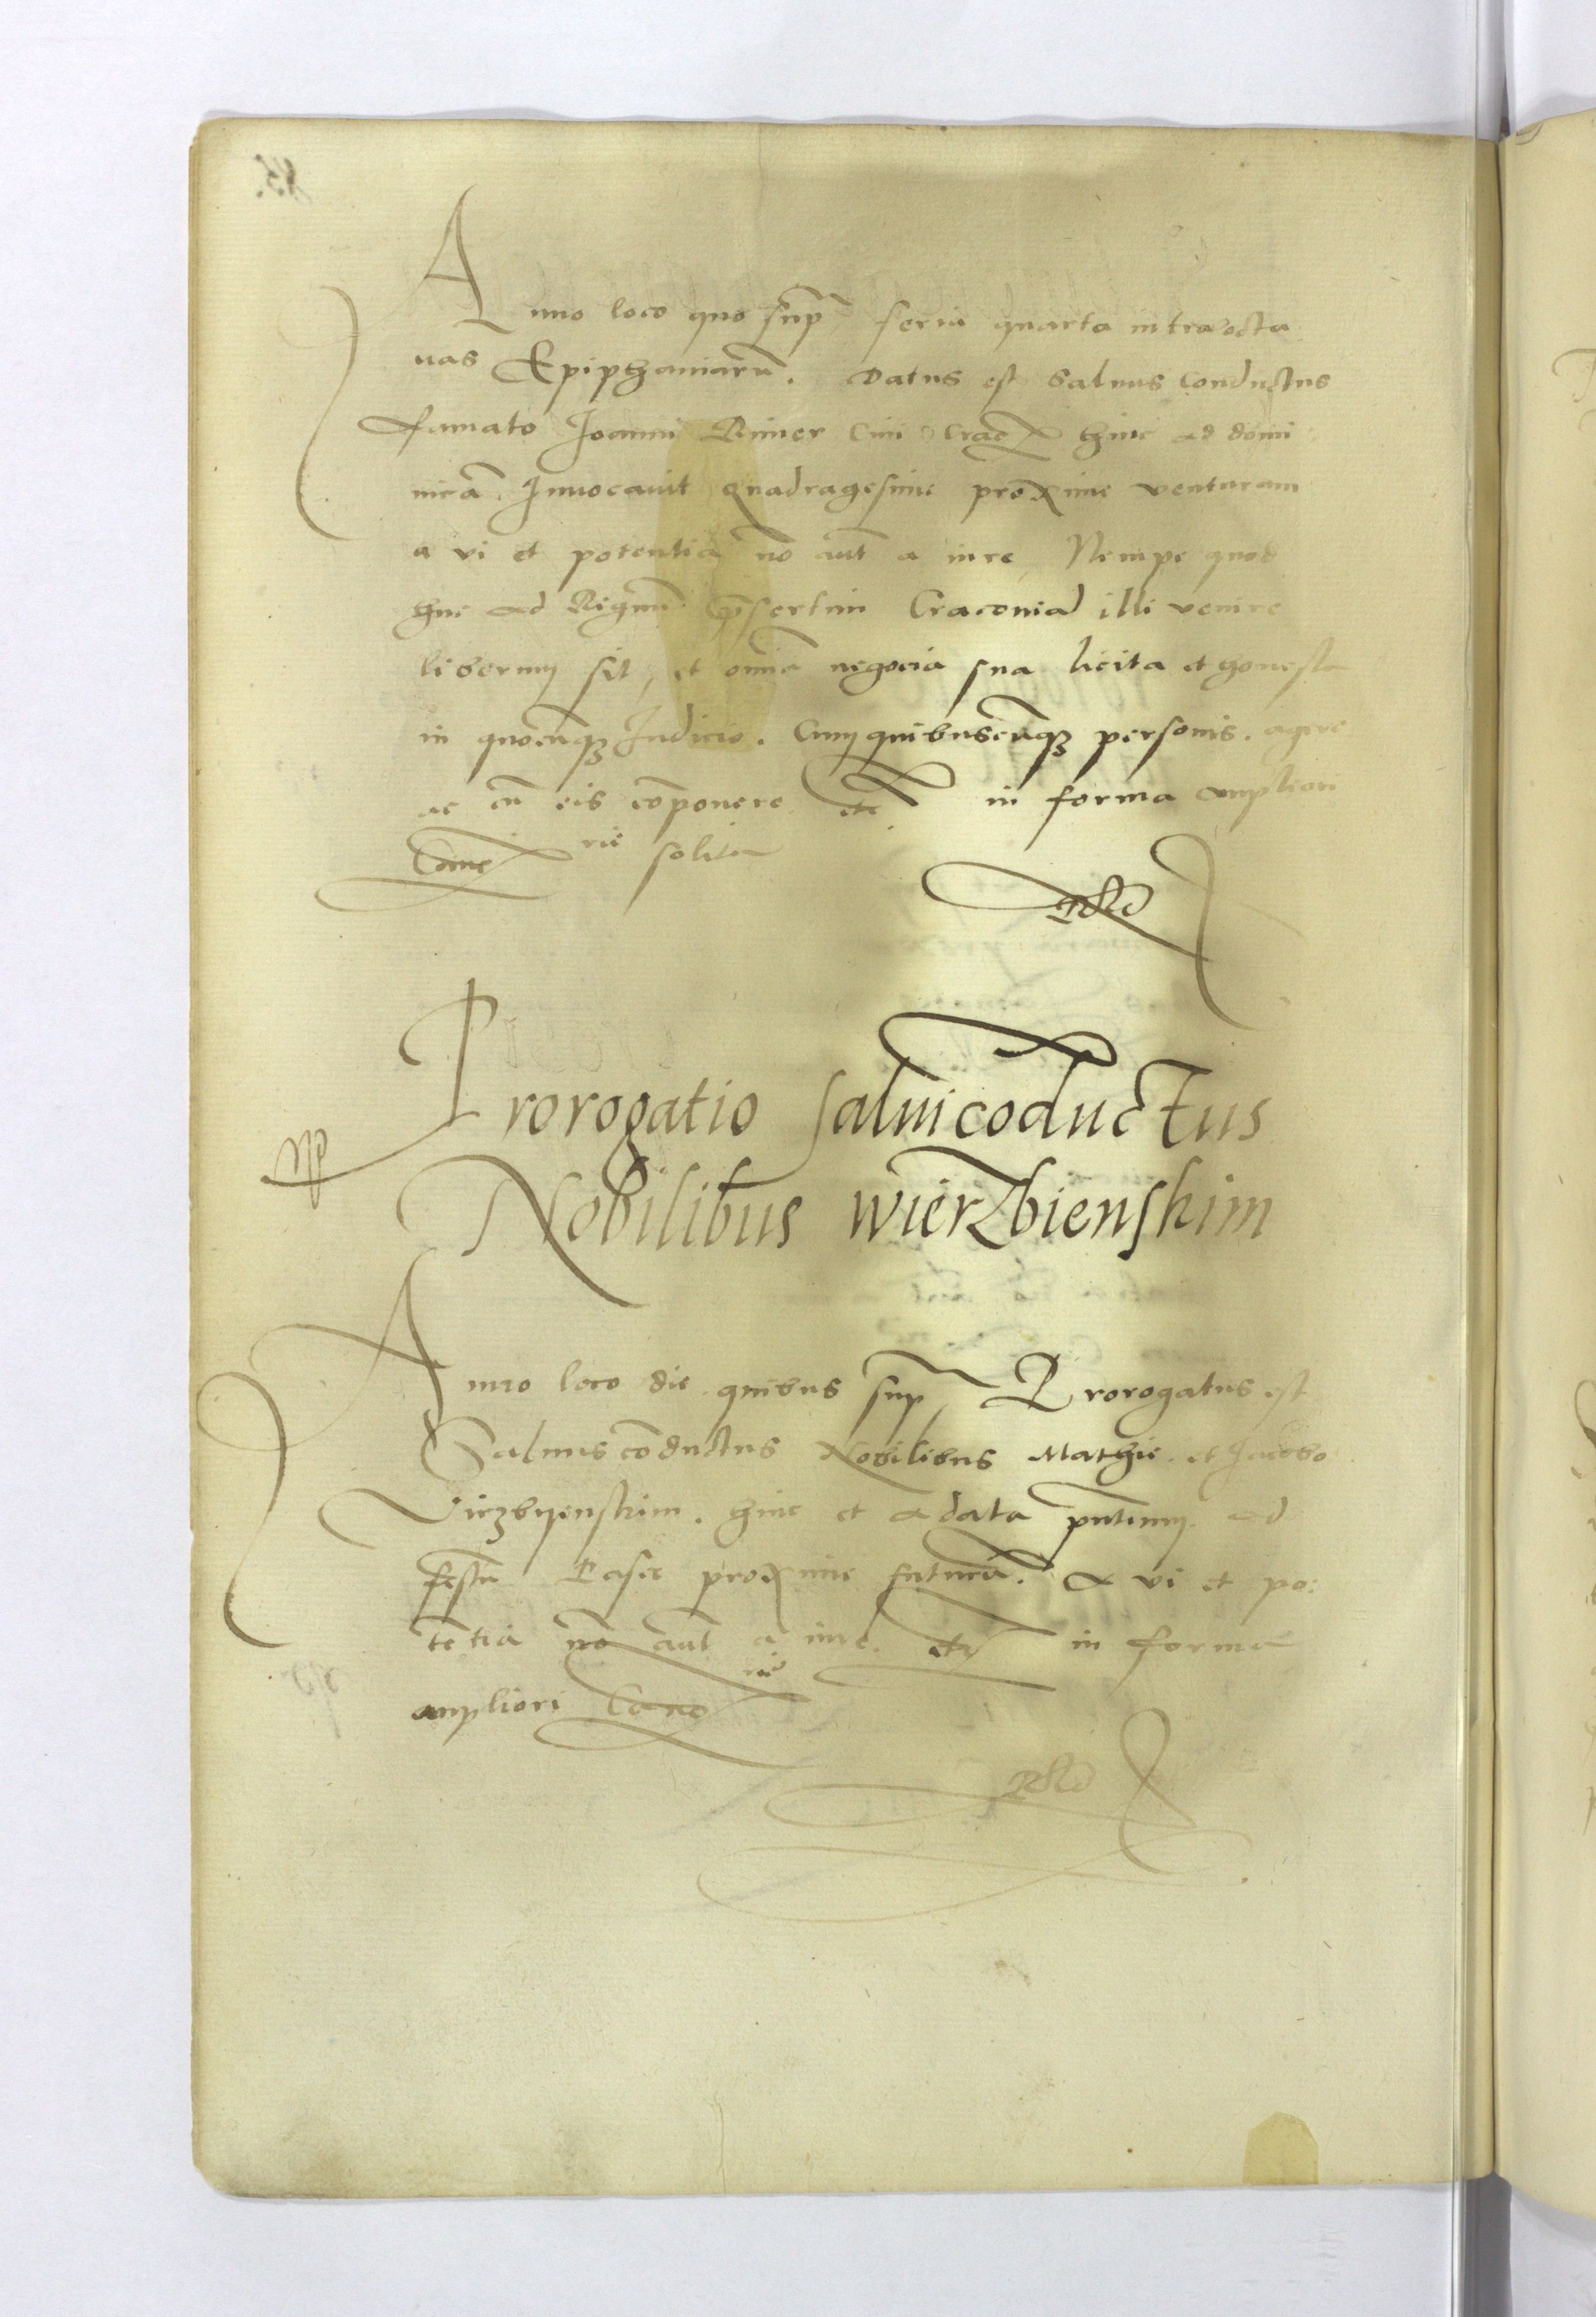 Anno loco quo sup feria quarta intra octa
uas Epiphaniarū. Datus est saluus conductus
famato Joanni Rimer Ciui Crac hinc ad domi
nicā Inuocauit quadragesime proxime venturam
a vi et potentia nō aūt a iure, Nempe quod
huc ad Regnū p̄sertim Cracouiā illi venire
liberum sit, et omia negocia sua licita et honesta
in quocūq₃ Iudicio. Cum quibuscūq₃ personis. agere
ac cū eis cōponere etc in forma ampliori
Canc rie solita
Prorogatio salui cōductus
Nobilibus wierzbienskim
Anno loco die quibus sup Prorogatus est
Saluus cōductus Nobilibus Mathie et Jacobo
Vierzbyenskim. hinc et a data pn̄tium. ad
festū Pasce proxime futurū. a vi et po:
tētia nō aūt a iure. etc in forma
ampliori Canc rie